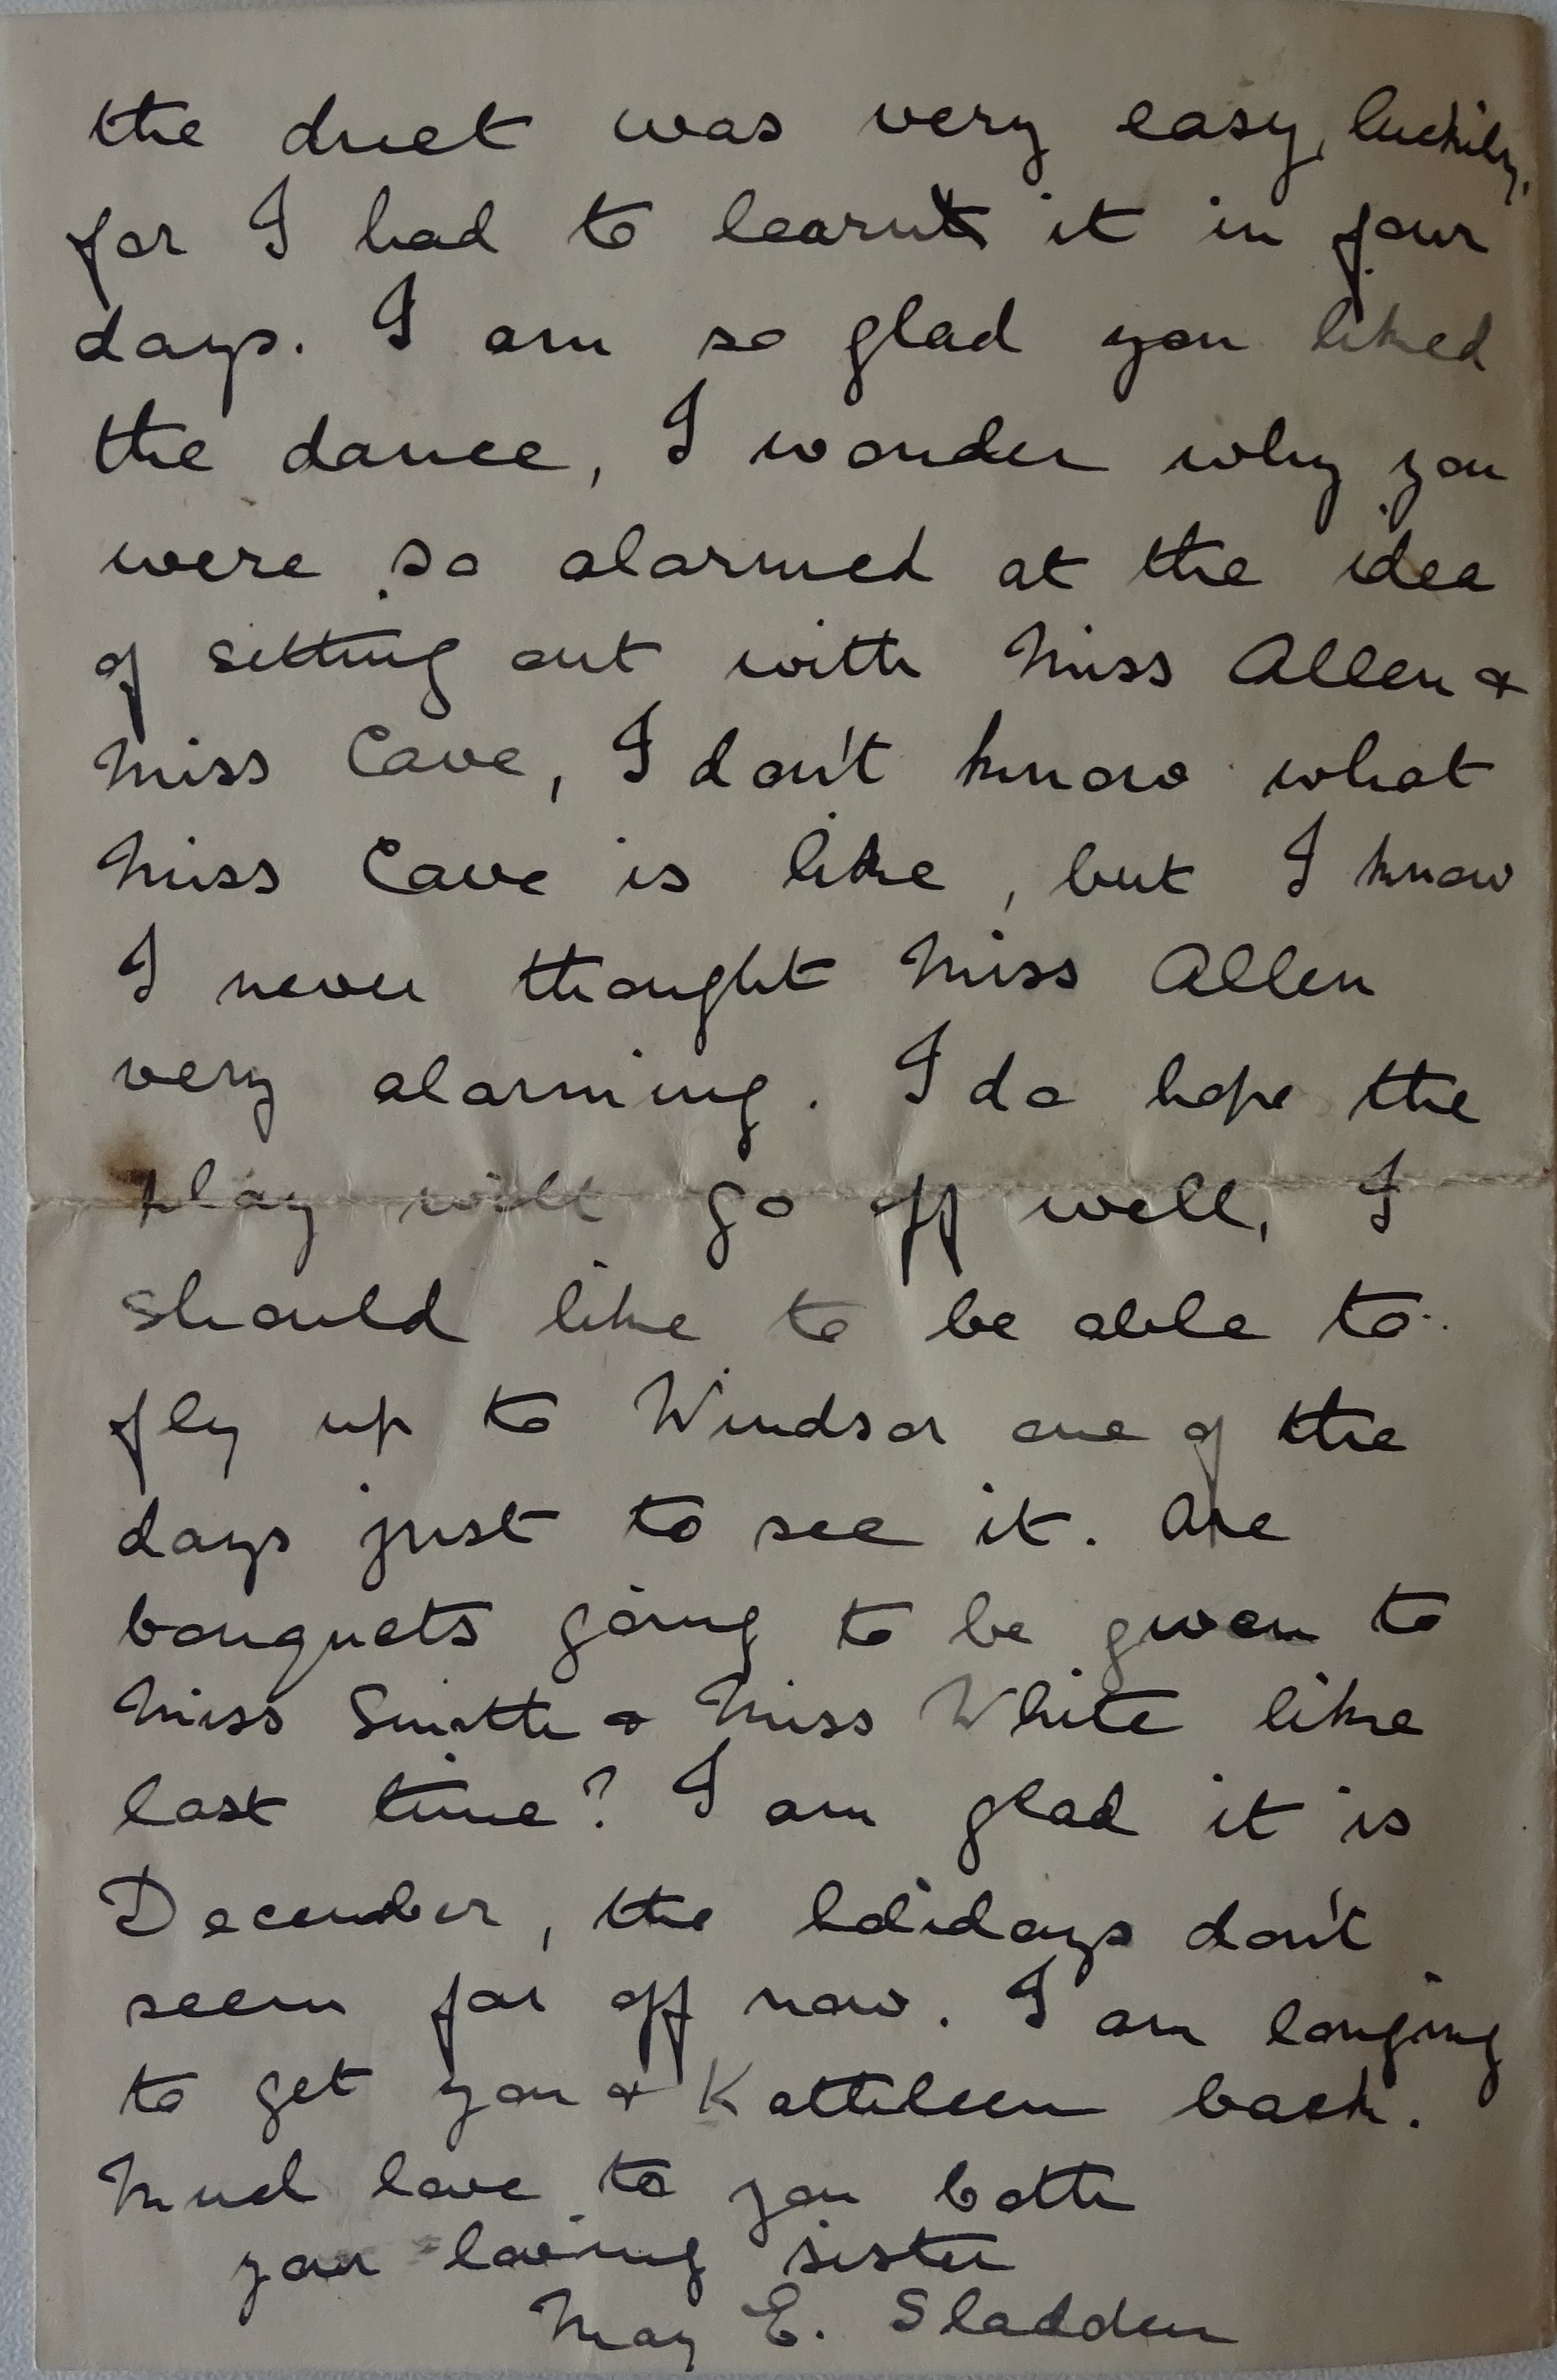 the duet was very easy, luckily,
for I had to learn it in four
days. I am so glad you liked
the dance, I wonder why you
were so alarmed at the idea
of sitting out with Miss Allen &
Miss Cave, I don't know what
Miss Cave is like, but I know
I never thought Miss Allen
very alarming. I do hope the
play will go off well, I
should like to be able to
fly up to Windsor one of the
days just to see it. Are
bouquets going to be given to
Miss Smith & Miss White like
last time? I am glad it is
December, the holidays don't
seem far off now. I am longing
to get you & Kathleen back.
Much love to you both
your loving sister
May E. Sladden